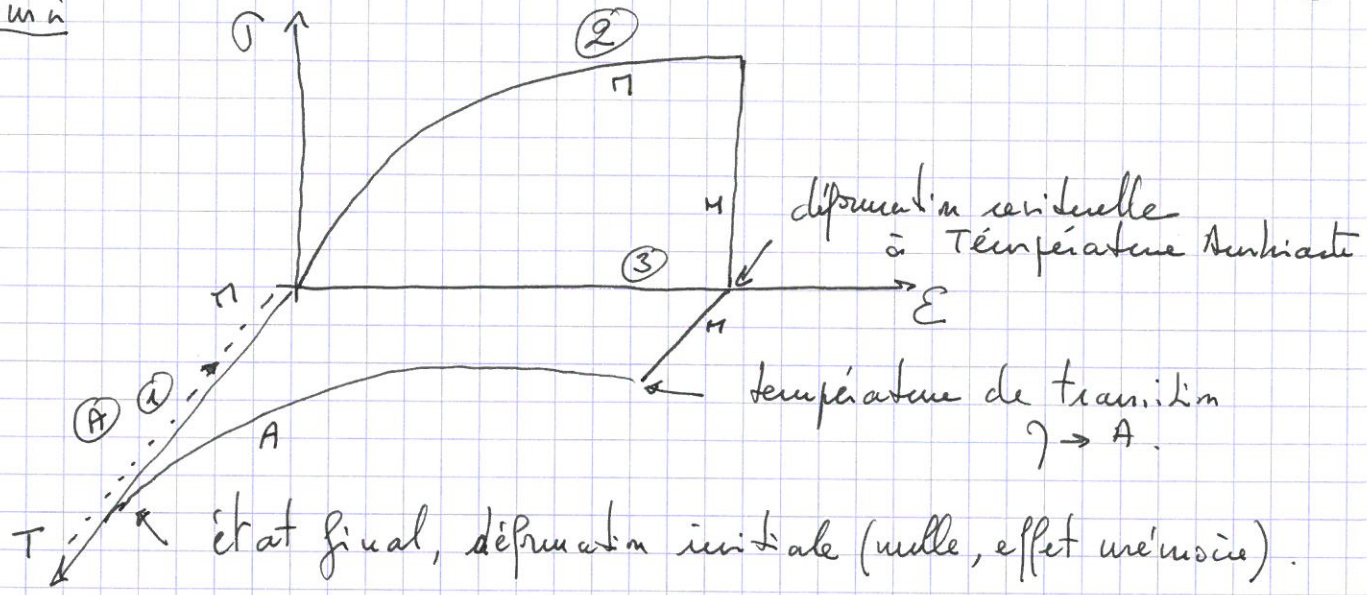 σ
②
M
M
déformation résiduelle
à Température Ambiante
③
M
ε
M
① 
Ⓐ
température de transition
A
M → A.
T
état final, déformation initiale (nulle, effet mémoire).